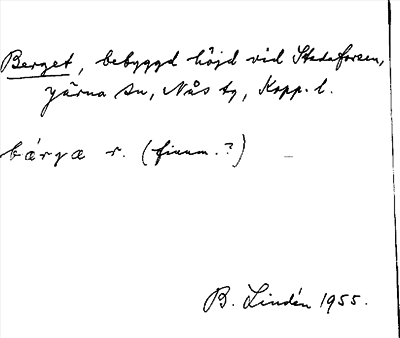 Berget, bebyggd höjd vid Stadaforsen,
Järna sn, Nås tg, Kopp. l.
bárga r. (finnm.?)
B. Lindén 1955.